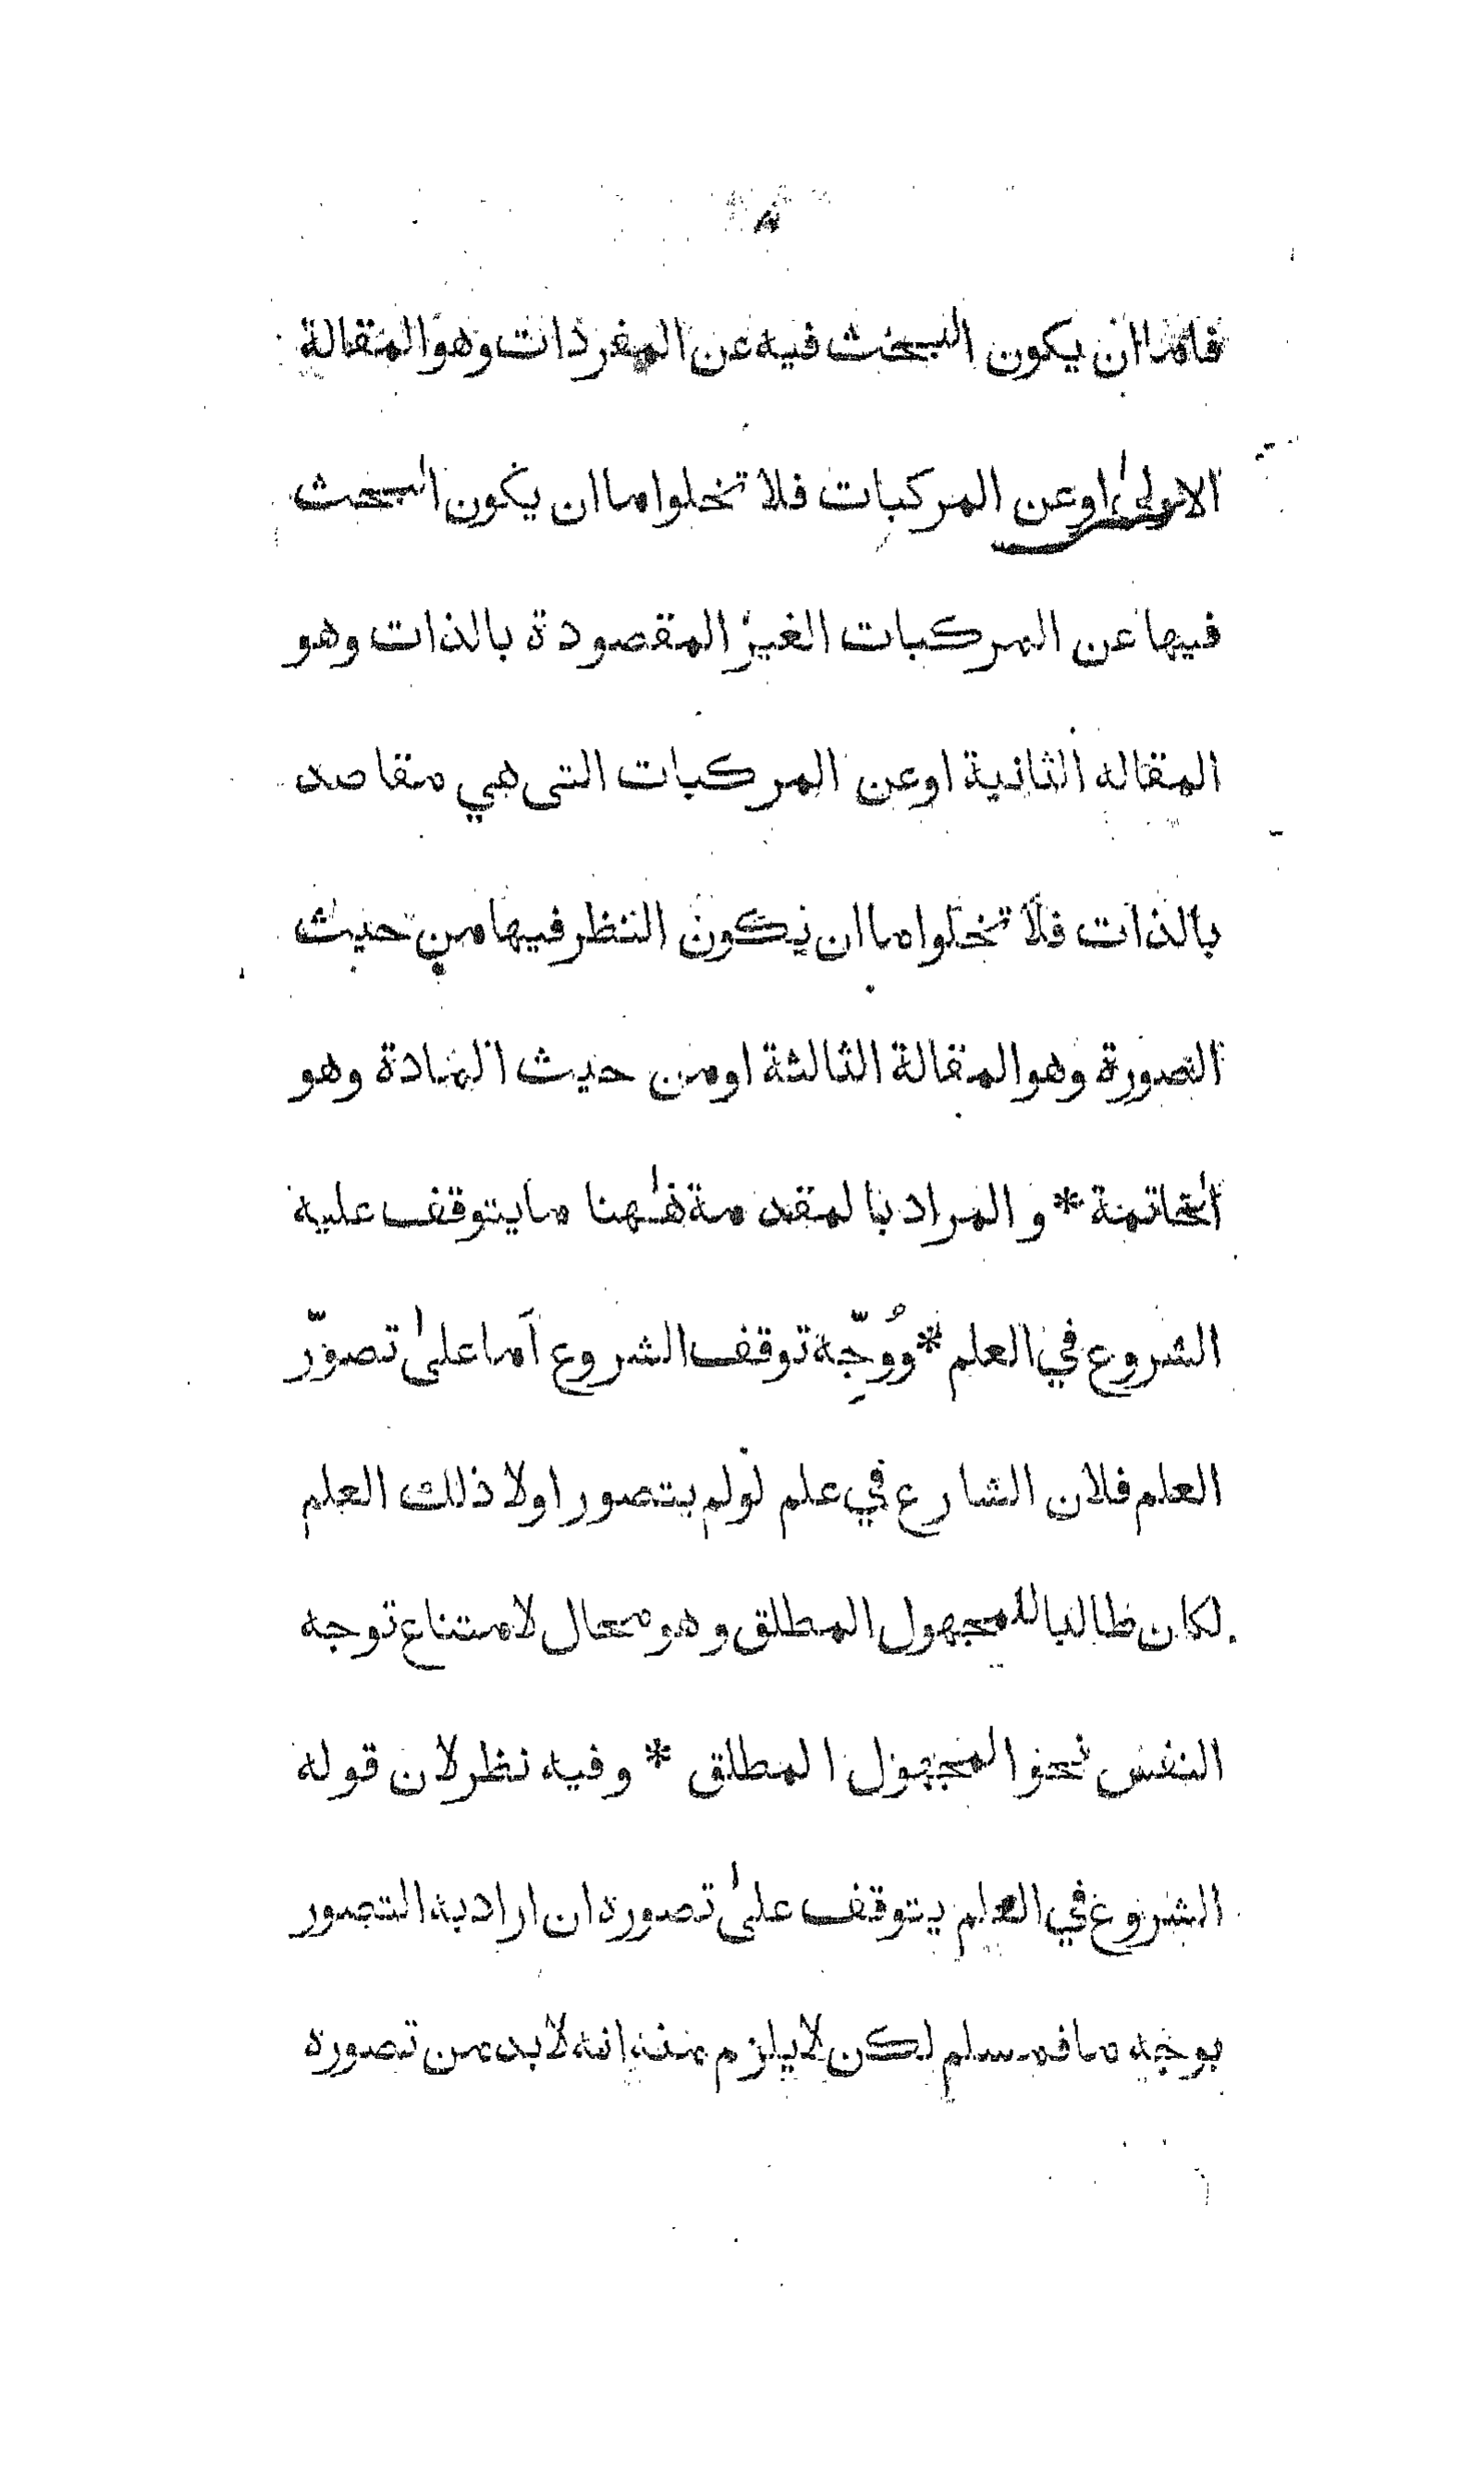 ٨
فاما ان يكون البحث فيه عن المفردات وهو المقالة
الاولىٰ اوعن المركبات فلا تخلوا ما ان يكون البحث
فيها عن المركبات الغير المقصودة بالذات وهو
المقاله الثانية اوعن المركبات التى هي مقاصد
بالذات فلا تخلوا ما ان يكون النظر فيها من حيث
الصورة وهو المقالة الثالثة اومن حيث المادة وهو
الخاتمة * و المراد بالمقدمة هٰهنا ما يتوقف عليه
الشروع في العلم * ووُجِّه توقف الشروع اَما علىٰ تصوّر
العلم فلان الشارع في علم لولم يتصور اولا ذلك العلم
لكان طالبا للمجهول المطلق و هو محال لامتناع توجه
النفس نحو المجهول المطلق * وفيه نظر لان قوله
الشروع في العلم يتوقف علىٰ تصوره ان اراد به التصور
بوجه ما فمسلم لكن لايلزم منه انه لابد من تصوره